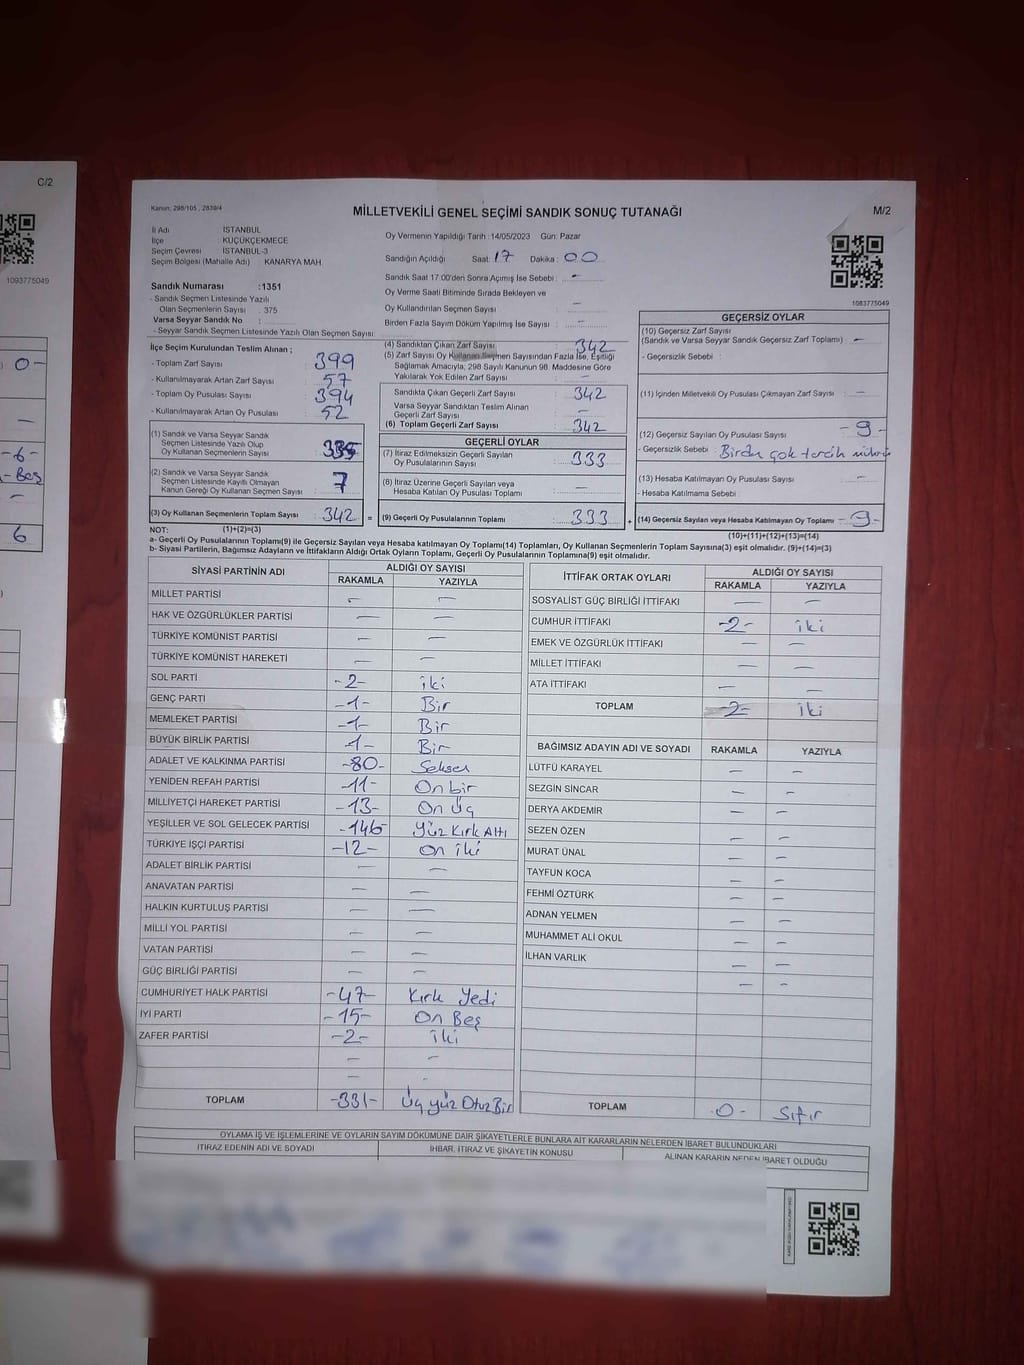 C/2
1093775049
0-
-
-6-
-Beş
-
6
Kanun; 298/105 , 2839/4
MİLLETVEKİLİ GENEL SEÇİMİ SANDIK SONUÇ TUTANAĞI
M/2
İl Adı İSTANBUL
İlçe KÜÇÜKÇEKMECE
Seçim Çevresi İSTANBUL-3
Seçim Bölgesi (Mahalle Adı) KANARYA MAH.
Sandık Numarası :1351
- Sandık Seçmen Listesinde Yazılı
Olan Seçmenlerin Sayısı : 375
Varsa Seyyar Sandık No :
- Seyyar Sandık Seçmen Listesinde Yazılı Olan Seçmen Sayısı:
Oy Vermenin Yapıldığı Tarih :14/05/2023 Gün: Pazar
Sandığın Açıldığı Saat: 17 Dakika: 00
Sandık Saat 17:00'den Sonra Açılmış İse Sebebi : -
Oy Verme Saati Bitiminde Sırada Bekleyen ve
Oy Kullandırılan Seçmen Sayısı : -
Birden Fazla Sayım Döküm Yapılmış İse Sayısı : -
1083775049
İlçe Seçim Kurulundan Teslim Alınan ;
- Toplam Zarf Sayısı : 399
- Kullanılmayarak Artan Zarf Sayısı : 57
- Toplam Oy Pusulası Sayısı : 394
- Kullanılmayarak Artan Oy Pusulası : 52
(1) Sandık ve Varsa Seyyar Sandık
Seçmen Listesinde Yazılı Olup
Oy Kullanan Seçmenlerin Sayısı : 335
(2) Sandık ve Varsa Seyyar Sandık
Seçmen Listesinde Kayıtlı Olmayan
Kanun Gereği Oy Kullanan Seçmen Sayısı : 7
(3) Oy Kullanan Seçmenlerin Toplam Sayısı : 342 =
(4) Sandıktan Çıkan Zarf Sayısı : 342
(5) Zarf Sayısı Oy Kullanan Seçmen Sayısından Fazla İse, Eşitliği
Sağlamak Amacıyla; 298 Sayılı Kanunun 98. Maddesine Göre
Yakılarak Yok Edilen Zarf Sayısı : -
Sandıkta Çıkan Geçerli Zarf Sayısı : 342
Varsa Seyyar Sandıktan Teslim Alınan
Geçerli Zarf Sayısı : -
(6) Toplam Geçerli Zarf Sayısı : 342
GEÇERLİ OYLAR
(7) İtiraz Edilmeksizin Geçerli Sayılan
Oy Pusulalarının Sayısı : 333
(8) İtiraz Üzerine Geçerli Sayılan veya
Hesaba Katılan Oy Pusulası Toplamı : -
(9) Geçerli Oy Pusulalarının Toplamı : 333 +
GEÇERSİZ OYLAR
(10) Geçersiz Zarf Sayısı
(Sandık ve Varsa Seyyar Sandık Geçersiz Zarf Toplamı) : -
- Geçersizlik Sebebi :
(11) İçinden Milletvekili Oy Pusulası Çıkmayan Zarf Sayısı : -
(12) Geçersiz Sayılan Oy Pusulası Sayısı : -9-
- Geçersizlik Sebebi : Birden çok tercih
(13) Hesaba Katılmayan Oy Pusulası Sayısı : -
- Hesaba Katılmama Sebebi :
(14) Geçersiz Sayılan veya Hesaba Katılmayan Oy Toplamı : -9-
NOT: (1)+(2)=(3)
(10)+(11)+(12)+(13)=(14)
a- Geçerli Oy Pusulalarının Toplamı(9) ile Geçersiz Sayılan veya Hesaba Katılmayan Oy Toplamı(14) Toplamları, Oy Kullanan Seçmenlerin Toplam Sayısına(3) eşit olmalıdır. (9)+(14)=(3)
b- Siyasi Partilerin, Bağımsız Adayların ve İttifakların Aldığı Ortak Oyların Toplamı, Geçerli Oy Pusulalarının Toplamına(9) eşit olmalıdır.
SİYASİ PARTİNİN ADI ALDIĞI OY SAYISI
RAKAMLA YAZIYLA
MİLLET PARTİSİ - -
HAK VE ÖZGÜRLÜKLER PARTİSİ - -
TÜRKİYE KOMÜNİST PARTİSİ - -
TÜRKİYE KOMÜNİST HAREKETİ - -
SOL PARTİ -2- iki
GENÇ PARTİ -1- Bir
MEMLEKET PARTİSİ -1- Bir
BÜYÜK BİRLİK PARTİSİ -1- Bir
ADALET VE KALKINMA PARTİSİ -80- Seksen
YENİDEN REFAH PARTİSİ -11- On bir
MİLLİYETÇİ HAREKET PARTİSİ -13- On Üç
YEŞİLLER VE SOL GELECEK PARTİSİ -146- Yüz Kırk Altı
TÜRKİYE İŞÇİ PARTİSİ -12- On iki
ADALET BİRLİK PARTİSİ - -
ANAVATAN PARTİSİ - -
HALKIN KURTULUŞ PARTİSİ - -
MİLLİ YOL PARTİSİ - -
VATAN PARTİSİ - -
GÜÇ BİRLİĞİ PARTİSİ - -
CUMHURİYET HALK PARTİSİ -47- Kırk Yedi
İYİ PARTİ -15- On Beş
ZAFER PARTİSİ -2- İki
- -
- -
TOPLAM -331- Üç yüz Otuz Bir
İTTİFAK ORTAK OYLARI ALDIĞI OY SAYISI
RAKAMLA YAZIYLA
SOSYALİST GÜÇ BİRLİĞİ İTTİFAKI - -
CUMHUR İTTİFAKI -2- iki
EMEK VE ÖZGÜRLÜK İTTİFAKI - -
MİLLET İTTİFAKI - -
ATA İTTİFAKI - -
TOPLAM -2- iki
BAĞIMSIZ ADAYIN ADI VE SOYADI RAKAMLA YAZIYLA
LÜTFÜ KARAYEL - -
SEZGİN SİNCAR - -
DERYA AKDEMİR - -
SEZEN ÖZEN - -
MURAT ÜNAL - -
TAYFUN KOCA - -
FEHMİ ÖZTÜRK - -
ADNAN YELMEN - -
MUHAMMET ALİ OKUL - -
İLHAN VARLIK - -
- -
TOPLAM -0- Sıfır
OYLAMA İŞ VE İŞLEMLERİNE VE OYLARIN SAYIM DÖKÜMÜNE DAİR ŞİKAYETLERLE BUNLARA AİT KARARLARIN NELERDEN İBARET BULUNDUKLARI
İTİRAZ EDENİN ADI VE SOYADI İHBAR, İTİRAZ VE ŞİKAYETİN KONUSU ALINAN KARARIN NEDEN İBARET OLDUĞU